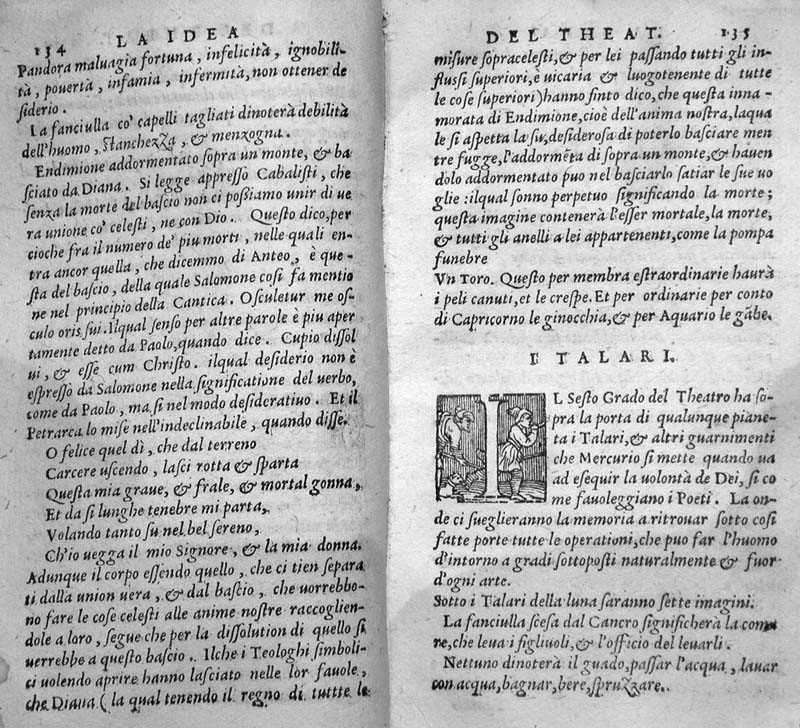 134 LA IDEA
Pandora maluagia fortuna, infelicità, ignobili-
tà, pouertà, infamia, infermità, non ottener de
siderio.
La fanciulla co' capelli tagliati dinoterà debilità
dell'huomo, stanchezza, & menzogna.
Endimione addormentato sopra un monte, & ba
sciato da Diana. Si legge appresso Cabalisti, che
senza la morte del bascio non ci possiamo unir di ue
ra unione co' celesti, ne con Dio. Questo dico, per
cioche fra il numero de' piu morti, nelle quali en-
tra ancor quella, che dicemmo di Anteo, è que-
sta del bascio, della quale Salomone cosi fa mentio
ne nel principio della Cantica. Osculetur me os-
culo oris sui. Ilqual senso per altre parole è piu aper
tamente detto da Paolo, quando dice. Cupio dissol
ui, & esse cum Christo. ilqual desiderio non è
espresso da Salomone nella significatione del uerbo,
come da Paolo, ma si nel modo desideratiuo. Et il
Petrarca lo mise nell'indeclinabile, quando disse.
O felice quel dì, che dal terreno
Carcere uscendo, lasci rotta & sparta
Questa mia graue, & frale, & mortal gonna,
Et da si lunghe tenebre mi parta,
Volando tanto su nel bel sereno,
Ch'io uegga il mio Signore, & la mia donna.
Adunque il corpo essendo quello, che ci tien separa
ti dalla union uera, & dal bascio, che uorrebbo-
no fare le cose celesti alle anime nostre raccoglien-
dole a loro, segue che per la dissolution di quello si
uerrebbe a questo bascio. Ilche i Teologhi simboli-
ci uolendo aprire hanno lasciato nelle lor fauole,
che Diana (la qual tenendo il regno di tuttte le
DEL THEAT. 135
misure sopracelesti, & per lei passando tutti gli in-
flussi superiori, è uicaria & luogotenente di tutte
le cose superiori) hanno finto dico, che questa inna-
morata di Endimione, cioè dell'anima nostra, laqua
le si aspetta la su, desiderosa di poterlo basciare men
tre fugge, l'addormēta di sopra un monte, & hauen
dolo addormentato puo nel basciarlo satiar le sue uo
glie: ilqual sonno perpetuo significando la morte;
questa imagine contenerà l'esser mortale, la morte,
& tutti gli anelli a lei appartenenti, come la pompa
funebre
Vn Toro. Questo per membra estraordinarie haurà
i peli canuti, et le crespe. Et per ordinarie per conto
di Capricorno le ginocchia, & per Aquario le gābe.
I TALARI.
IL Sesto Grado del Theatro ha so-
pra la porta di qualunque piane-
ta i Talari, & altri guarnimenti
che Mercurio si mette quando ua
ad esequir la uolontà de Dei, si co
me fauoleggiano i Poeti. La on-
de ci sueglieranno la memoria a ritrouar sotto cosi
fatte porte tutte le operationi, che puo far l'huomo
d'intorno a gradi sottoposti naturalmente & fuor
d'ogni arte.
Sotto i Talari della luna saranno sette imagini.
La fanciulla scesa dal Cancro significherà la coma
re, che leua i figliuoli, & l'officio del leuarli.
Nettuno dinoterà il guado, passar l'acqua, lauar
con acqua, bagnar, bere, spruzzare.